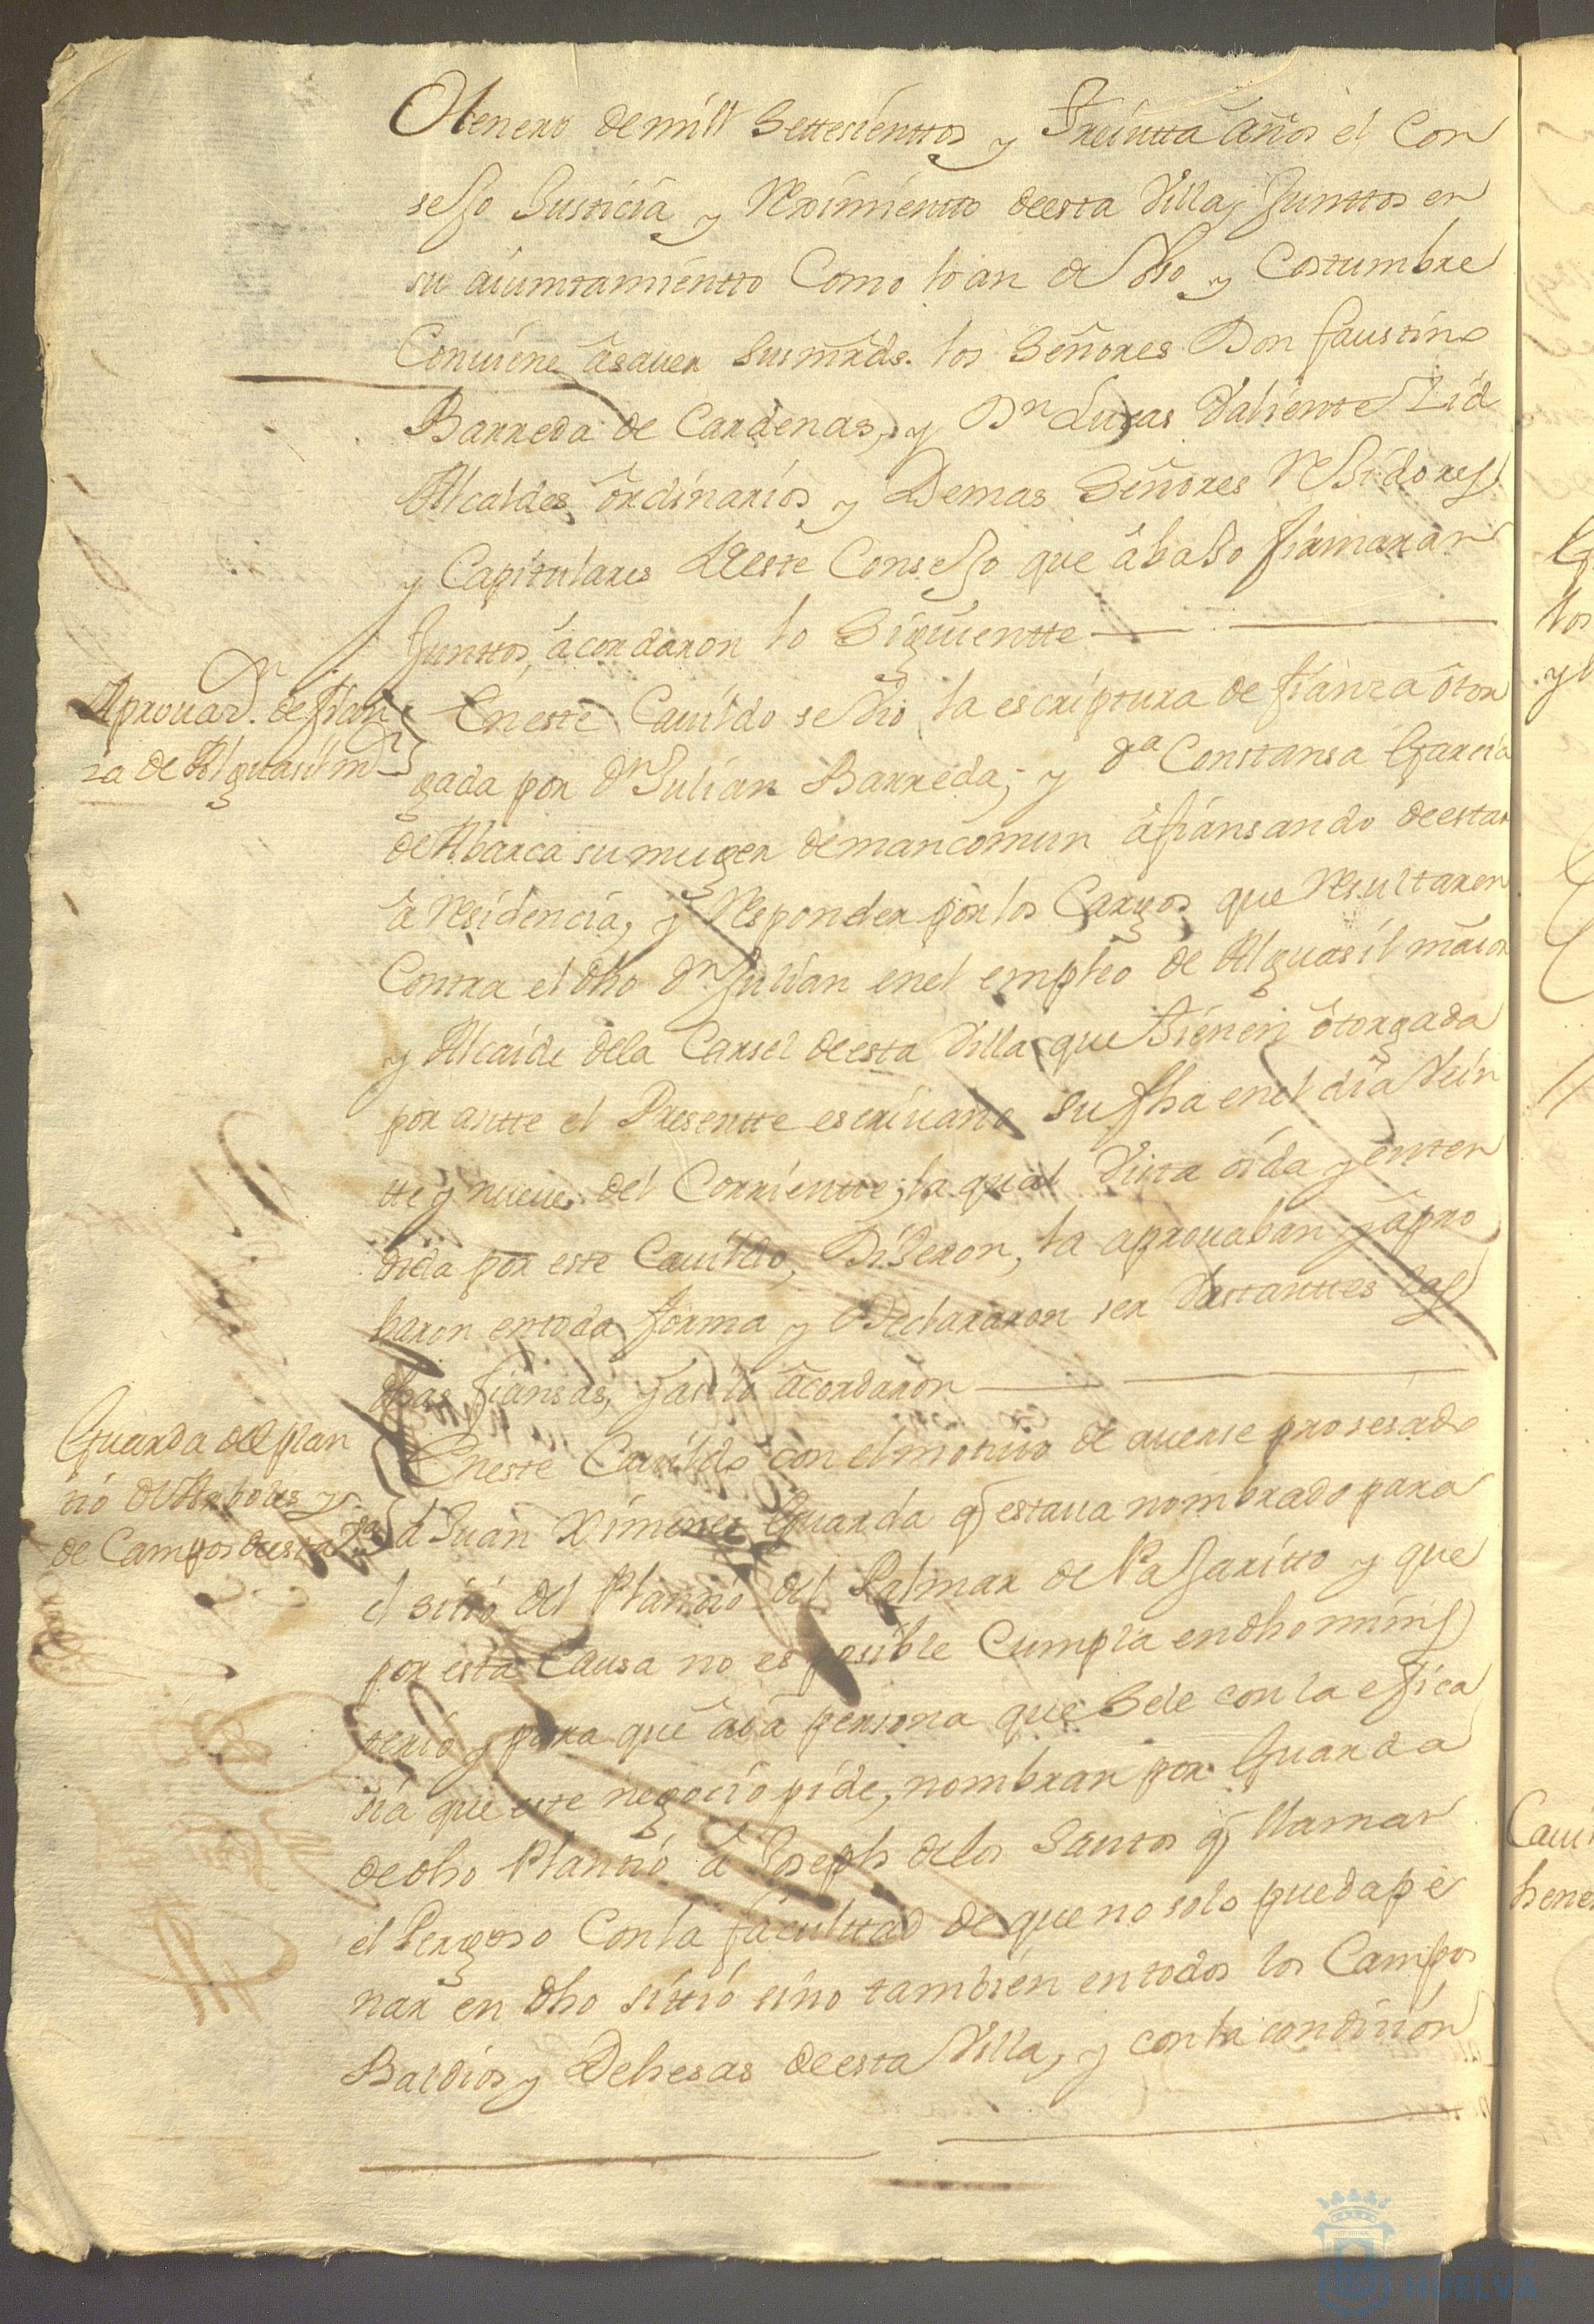 de henero de mill Settesienttos y Treintta años el Con
sejo Justicia y Reximientto deesta Villa, Junttos en
su aiumtamientto Como lo an de Vso y Costumbre
Conuiene âsauer Susmrds. los Señores Don faustino
Barreda de Cardenas, y Dn Lucas Valiente Lid
Alcaldes ôrdinarios y Demas Señores Residores
y Capitulares deeste Consejo que âbaso firmaran
Junttos, âcordaron lo Siguientte
Aprouaon. de fian
za de Alguasil mr
En este Cauildo se vio la escriptura de fianza ôtor
gada por Dn Julian Barreda; y da Constansa Garcia
de Abarca su muger demancomun âfiansando deestar
â residencia, y Responder por los Cargos que resultaren
Contra el dho Dn Julian enel empleo de Alguasil maior
y Alcaide dela Carsel deesta Villa que tienen ôtorgada
por antte el Presentte escriuano su fha enel dia Vein
tte y nueue del Corrientte; la qual Vista oida y enten
dida por este Cauildo, Dijeron, la aprouaban y âpro
baron entoda forma y Declararon ser Vastanttes las
dhas fiansas, y asi lo âcordaron
Guarda del plan
tio de Arboles y
de Campos deesta Va
Eneste Cauildo con el motiuo de auerse prosesado
â Juan Ximenes Guarda q estaua nombrado para
el sitio del Plantio del Palmar de Pajaritto y que
por esta Causa no es posible Cumpla en dho minis
terio y para que âia persona que Sele con la efica
sia que este negocio pide, nombran por Guarda
de dho Plantio â Joseph delos Santos q llaman
el Pergoso Con la facultad de que no solo pueda pe
nar en dho sittio sino tambien entodos los Campos
Baldios y Dehesas deesta Villa, y con la condision
HUELVA